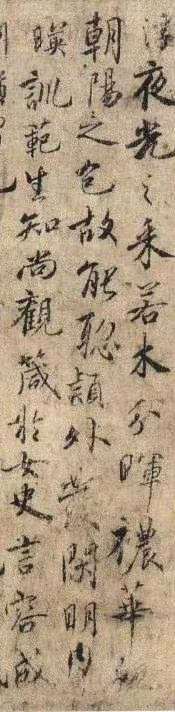 夜光之采若木分暉穠華
朝陽之色故能聡穎外發閑明內
暎訓範生知尚觀箴於女史言容成